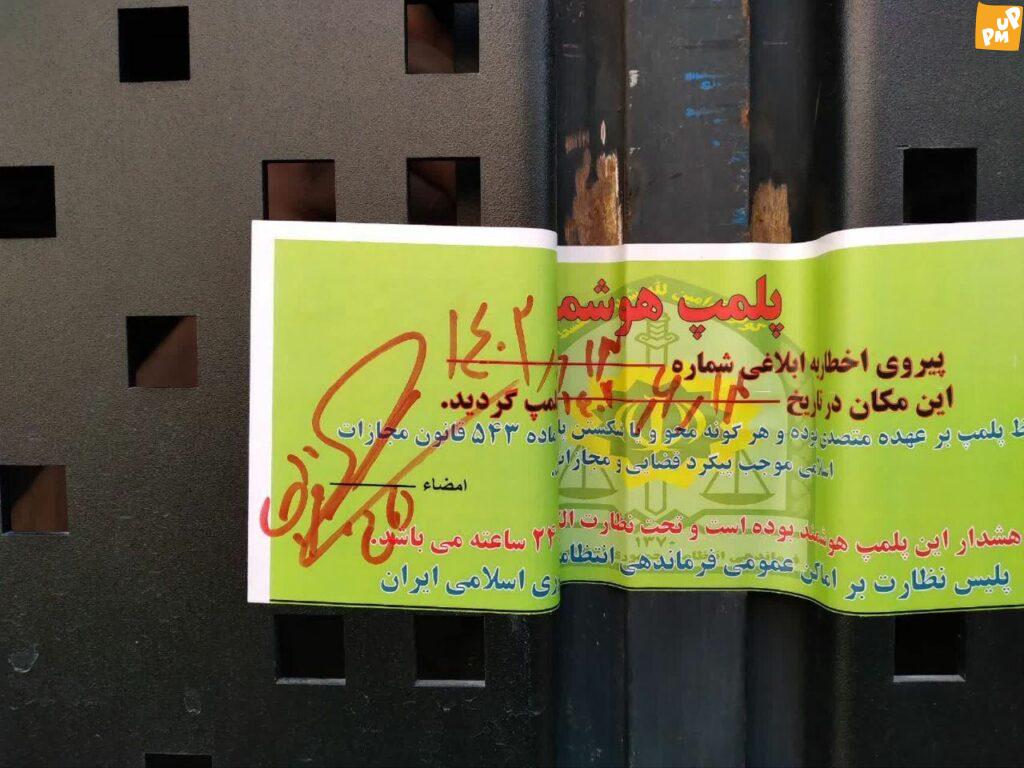 UP
PM
پلمپ هوشم
پیروی اخطاریه ابلاغی شماره
این مکان در تاریخ لمپ گردید.
ظ پلمپ بر عهده متصدی بوده و هر گونه محو و یا شکستن پل ماده ۵۴۳ قانون مجازات
اسلامی موجب پیگرد قضایی و مجازات
امضاء
هشدار این پلمپ هوشمند بوده است و تحت نظارت الک ۲۴ ساعته می باشد.
پلیس نظارت بر اماکن عمومی فرماندهی انتظامی ری اسلامی ایران
۱۳۷۰